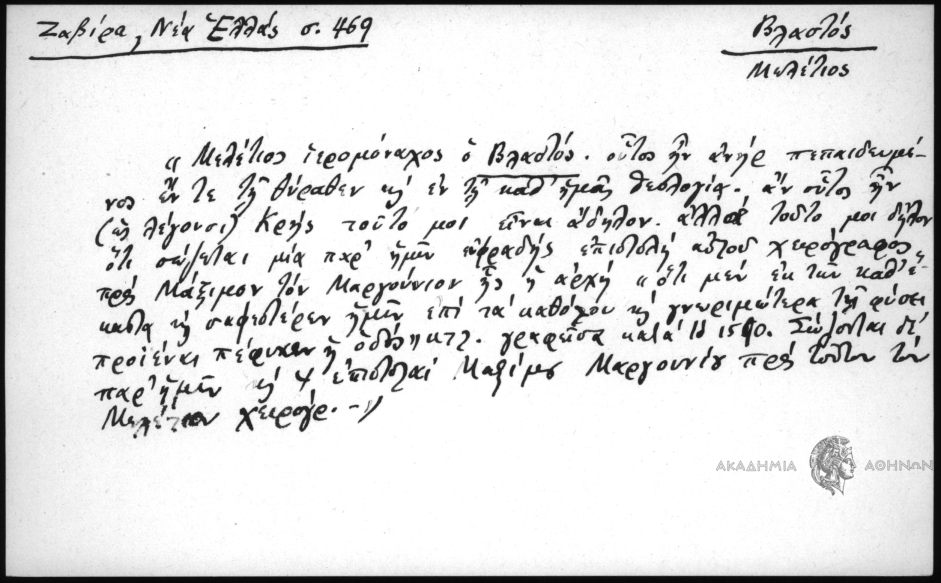 Ζαβίρα, Νέα Ἑλλάς σ. 469
Βλαστός
Μελέτιος
« Μελέτιος ἱερομόναχος ὁ Βλαστός. οὗτος ἦν ἀνήρ πεπαιδευμέ-
νος ἔν τε τῇ θύραθεν κὶ ἐν τῇ καθ' ἡμᾶς θεολογίᾳ. ἄν οὗτος ἦν
(ὡς λέγουσι) Κρής τοῦτο μοι εἶναι ἄδηλον. ἀλλά τοῦτο μοι δῆλον
ὅτι σώζεται μία παρ' ἡμῖν εὐφραδής ἐπιστολή αὐτοῦ χειρόγραφος
πρός Μάξιμον τόν Μαργούνιον ἧς ἡ ἀρχή « ὅτι μέν ἐκ τῶν καθ' ἕ-
καστα κὶ σαφεστέρων ἡμῖν ἐπί τά καθόλου κὶ γνωριμώτερα τῇ φύσει
προϊέναι πέφυκεν ἡ ὁδός κτλ. γραφεῖσα κατά τό Σώζονται δέ
παρ' ἡμῖν κὶ ἐπιστολαί Μαξίμου Μαργουνίου πρός τοῦτον τόν
Μελέτιον χειρόγρ. -»
ΑΚΑΔΗΜΙΑ ΑΘΗΝΩΝ